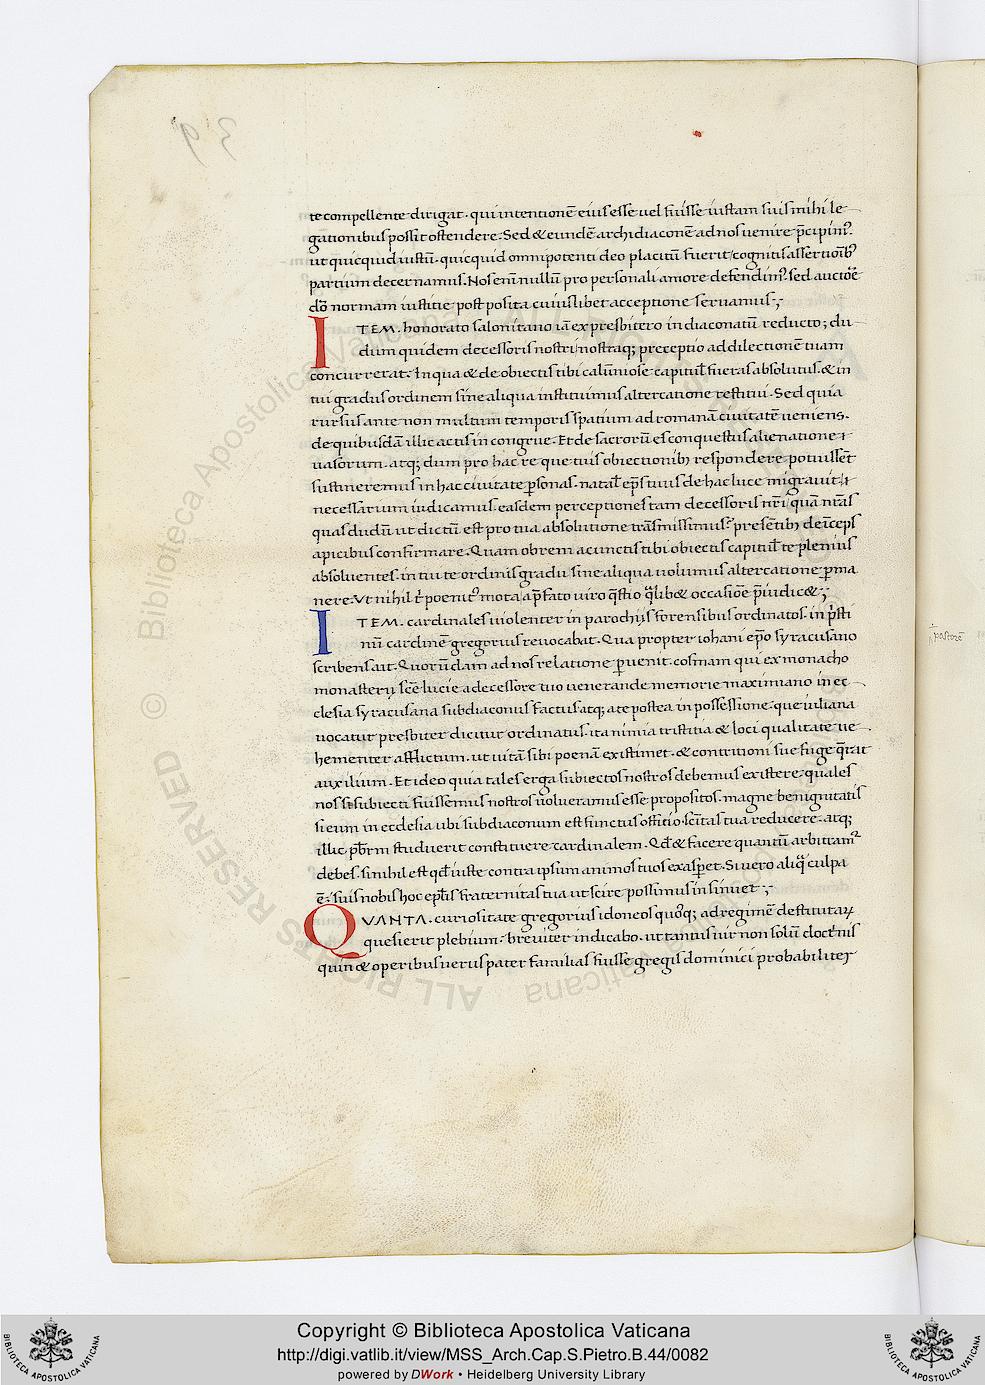 te compellente dirigat. qui intentionē eius esse uel fuisse iustam suis mihi le
gationibus possit ostendere. Sed & eundē archidiaconē ad nos uenire p̄cipimꝰ.
ut quicquid iustū. quicquid omnipotenti deo placitū fuerit cognitis assertioībꝰ
partium decernamus. Nos enī nullū pro personali amore defendimꝰ. sed auctōe
dō normam iustitie post posita cuiuslibet acceptione seruamus;
ITEM. honorato salonitano iā ex presbitero in diaconatū reducto; du
dum quidem decessoris nostri nostraq; preceptio ad dilectionē tuam
concurrerat. In qua & de obiectis tibi calūniose capitul̄ fueras absolutus. & in
tui gradus ordinem sine aliqua instituimus altercatione restitui. Sed quia
rursus ante non multum temporis spatium ad romanā ciuitatē ueniens.
de quibusdā illic actis in congrue. Et de sacrorū es conquestus alienatione
uasorum. atq; dum pro hac re que tuis obiectionib; respondere potuissēt
sustineremus in hac ciuitate p̲sonas. natal̄ ep̄s tuus de hac luce migrauit.
necessarium iudicamus. easdem perceptiones tam decessoris nr̄i quā nr̄as
quas dudū ut dictū est pro tua absolutione trāsmissimus. presētib; deīceps
apicibus confirmare. Quam obrem a cunctis tibi obiectis capitul̄ te plenius
absoluentes. in tui te ordinis gradu sine aliqua uolumus altercatione p̲ma
nere. Ut nihil t̄ poenitꝰ mota a p̄fato uiro q̄stio q̄lib& occasiōe p̄iudic&;
ITEM. cardinales uiolenter in parochijs forensibus ordinatos. in p̄sti
nū cardinē gregorius reuocabat. Qua propter iohani ep̄o syracusano
scribens ait. Quorūdam ad nos relatione p̲uenit. cosmam qui ex monacho
monasterij sc̄e lucie a decessore tuo uenerande memorie maximiano in ec
clesia syracusana subdiaconus factus atq; a te postea in possessione. que iuliana
uocatur presbiter dicitur ordinatus. ita nimia tristitia & loci qualitate ue
hementer afflictum. ut uitā sibi poenā existimet. & contritioni sue fuge q̄rat
auxilium. Et ideo quia tales erga subiectos nostros debemus existere. quales
nos si subiecti fuissemus nostros uolueramus esse propositos. magne benignitatis
si eum in ecclesia ubi subdiaconum est functus offitio. sc̄itas tua reducere. atq;
illic pb̄rm studuerit constituere cardinalem. Qd̄ & facere quantū arbitramꝰ
debes. si nihil est qd̄ iuste contra ipsum animos tuos exasp̲et. Si uero aliq̄ culpa
ē. suis nobis hoc ep̄lis fraternitas tua ut scire possimus insinuet;
QVANTA. curiositate gregorius idoneos quoq; ad regimē destitutarꝝ
quesierit plebium. breuiter indicabo. ut tantus uir non solū doct̄nis
quin & operibus uerus pater familias fuisse gregis dominici probabiliter
pastorē
39
© Biblioteca Apostolica Vaticana ALL RIGHTS RESERVED
Copyright © Biblioteca Apostolica Vaticana
http://digi.vatlib.it/view/MSS_Arch.Cap.S.Pietro.B.44/0082
powered by DWork • Heidelberg University Library
BIBLIOTECA APOSTOLICA VATICANA
BIBLIOTECA APOSTOLICA VATICANA